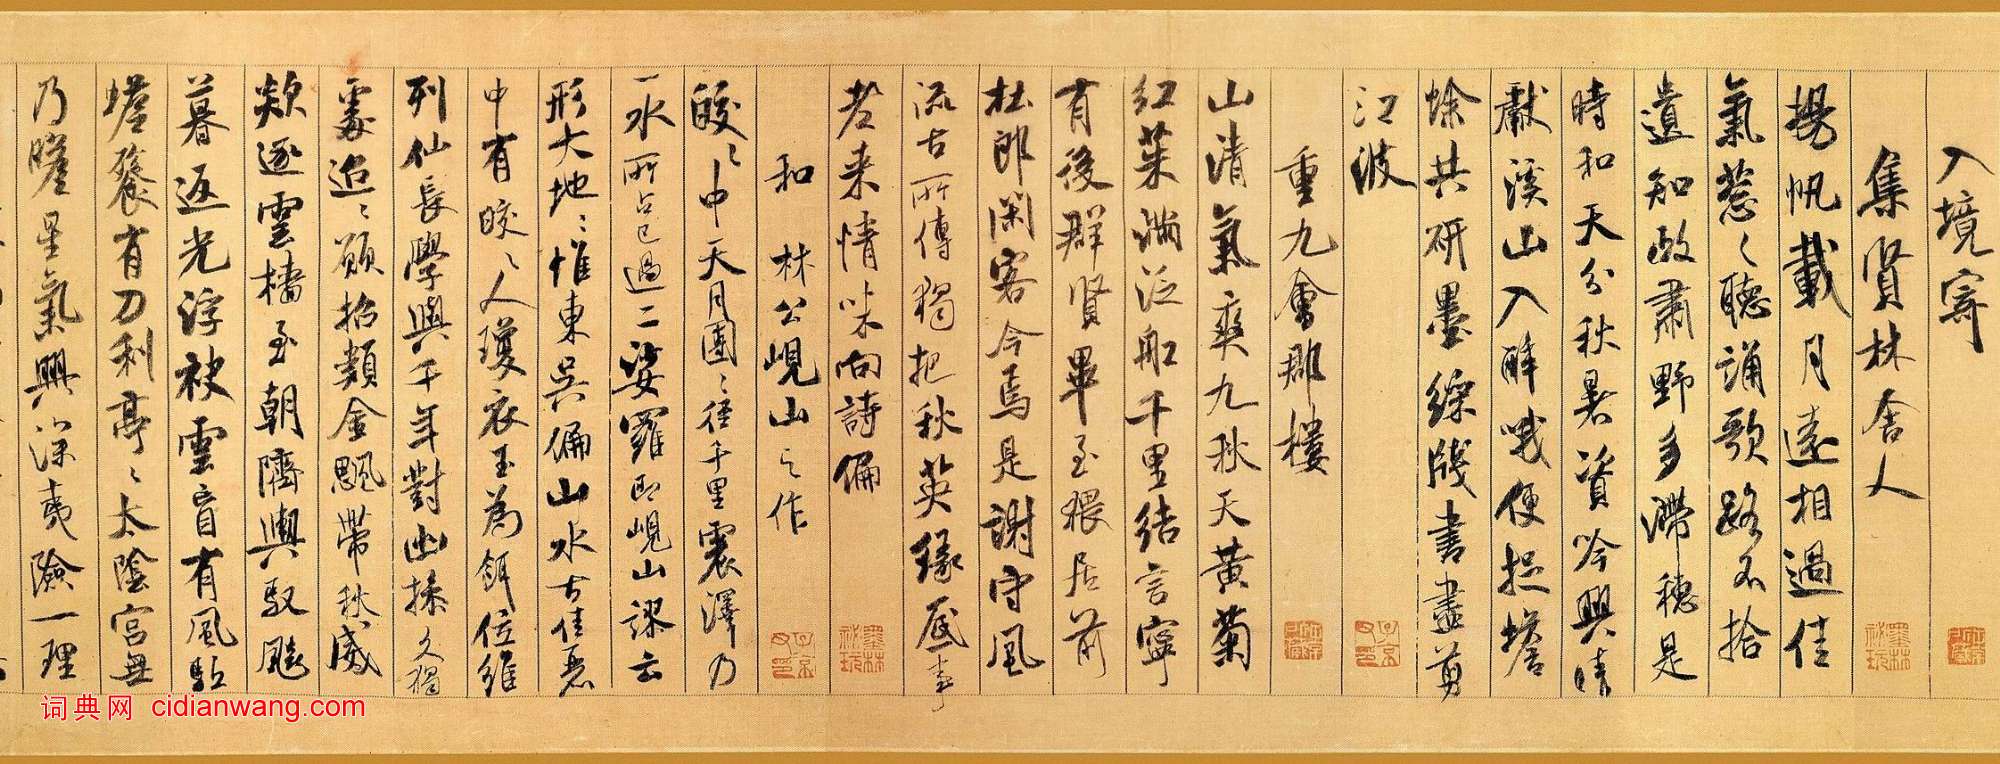 入境寄
集賢林舍人
揚帆載月遠相過佳
氣葱〻聽誦歌路不拾
遺知政肅野多滯穗是
時和天分秋暑資吟興晴
獻溪山入醉哦便捉蟾
蜍共研墨綵牋書盡剪
江波
重九會郡樓
山清氣爽九秋天黃菊
紅茱滿泛船千里結言寧
有後群賢畢至猥居前
杜郎閑客今焉是謝守風
流古所傳獨把秋英緣底事
老来情味向詩偏
和林公峴山之作
皎〻中天月團〻徑千里震澤乃
一水所占已過二娑羅即峴山謬云
形大地〻惟東吳偏山水古佳麗
中有皎〻人瓊衣玉為餌位維
列仙長學與千年對幽操久獨
處迢〻願招類金颸帶秋威
欻逐雲檣至朝隮輿馭飈
暮返光浮袂雲肓有風馭
蟾餮有刀利亭〻太陰宮無
乃瞻星氣興深夷險一理
词典网 cidianwang.com